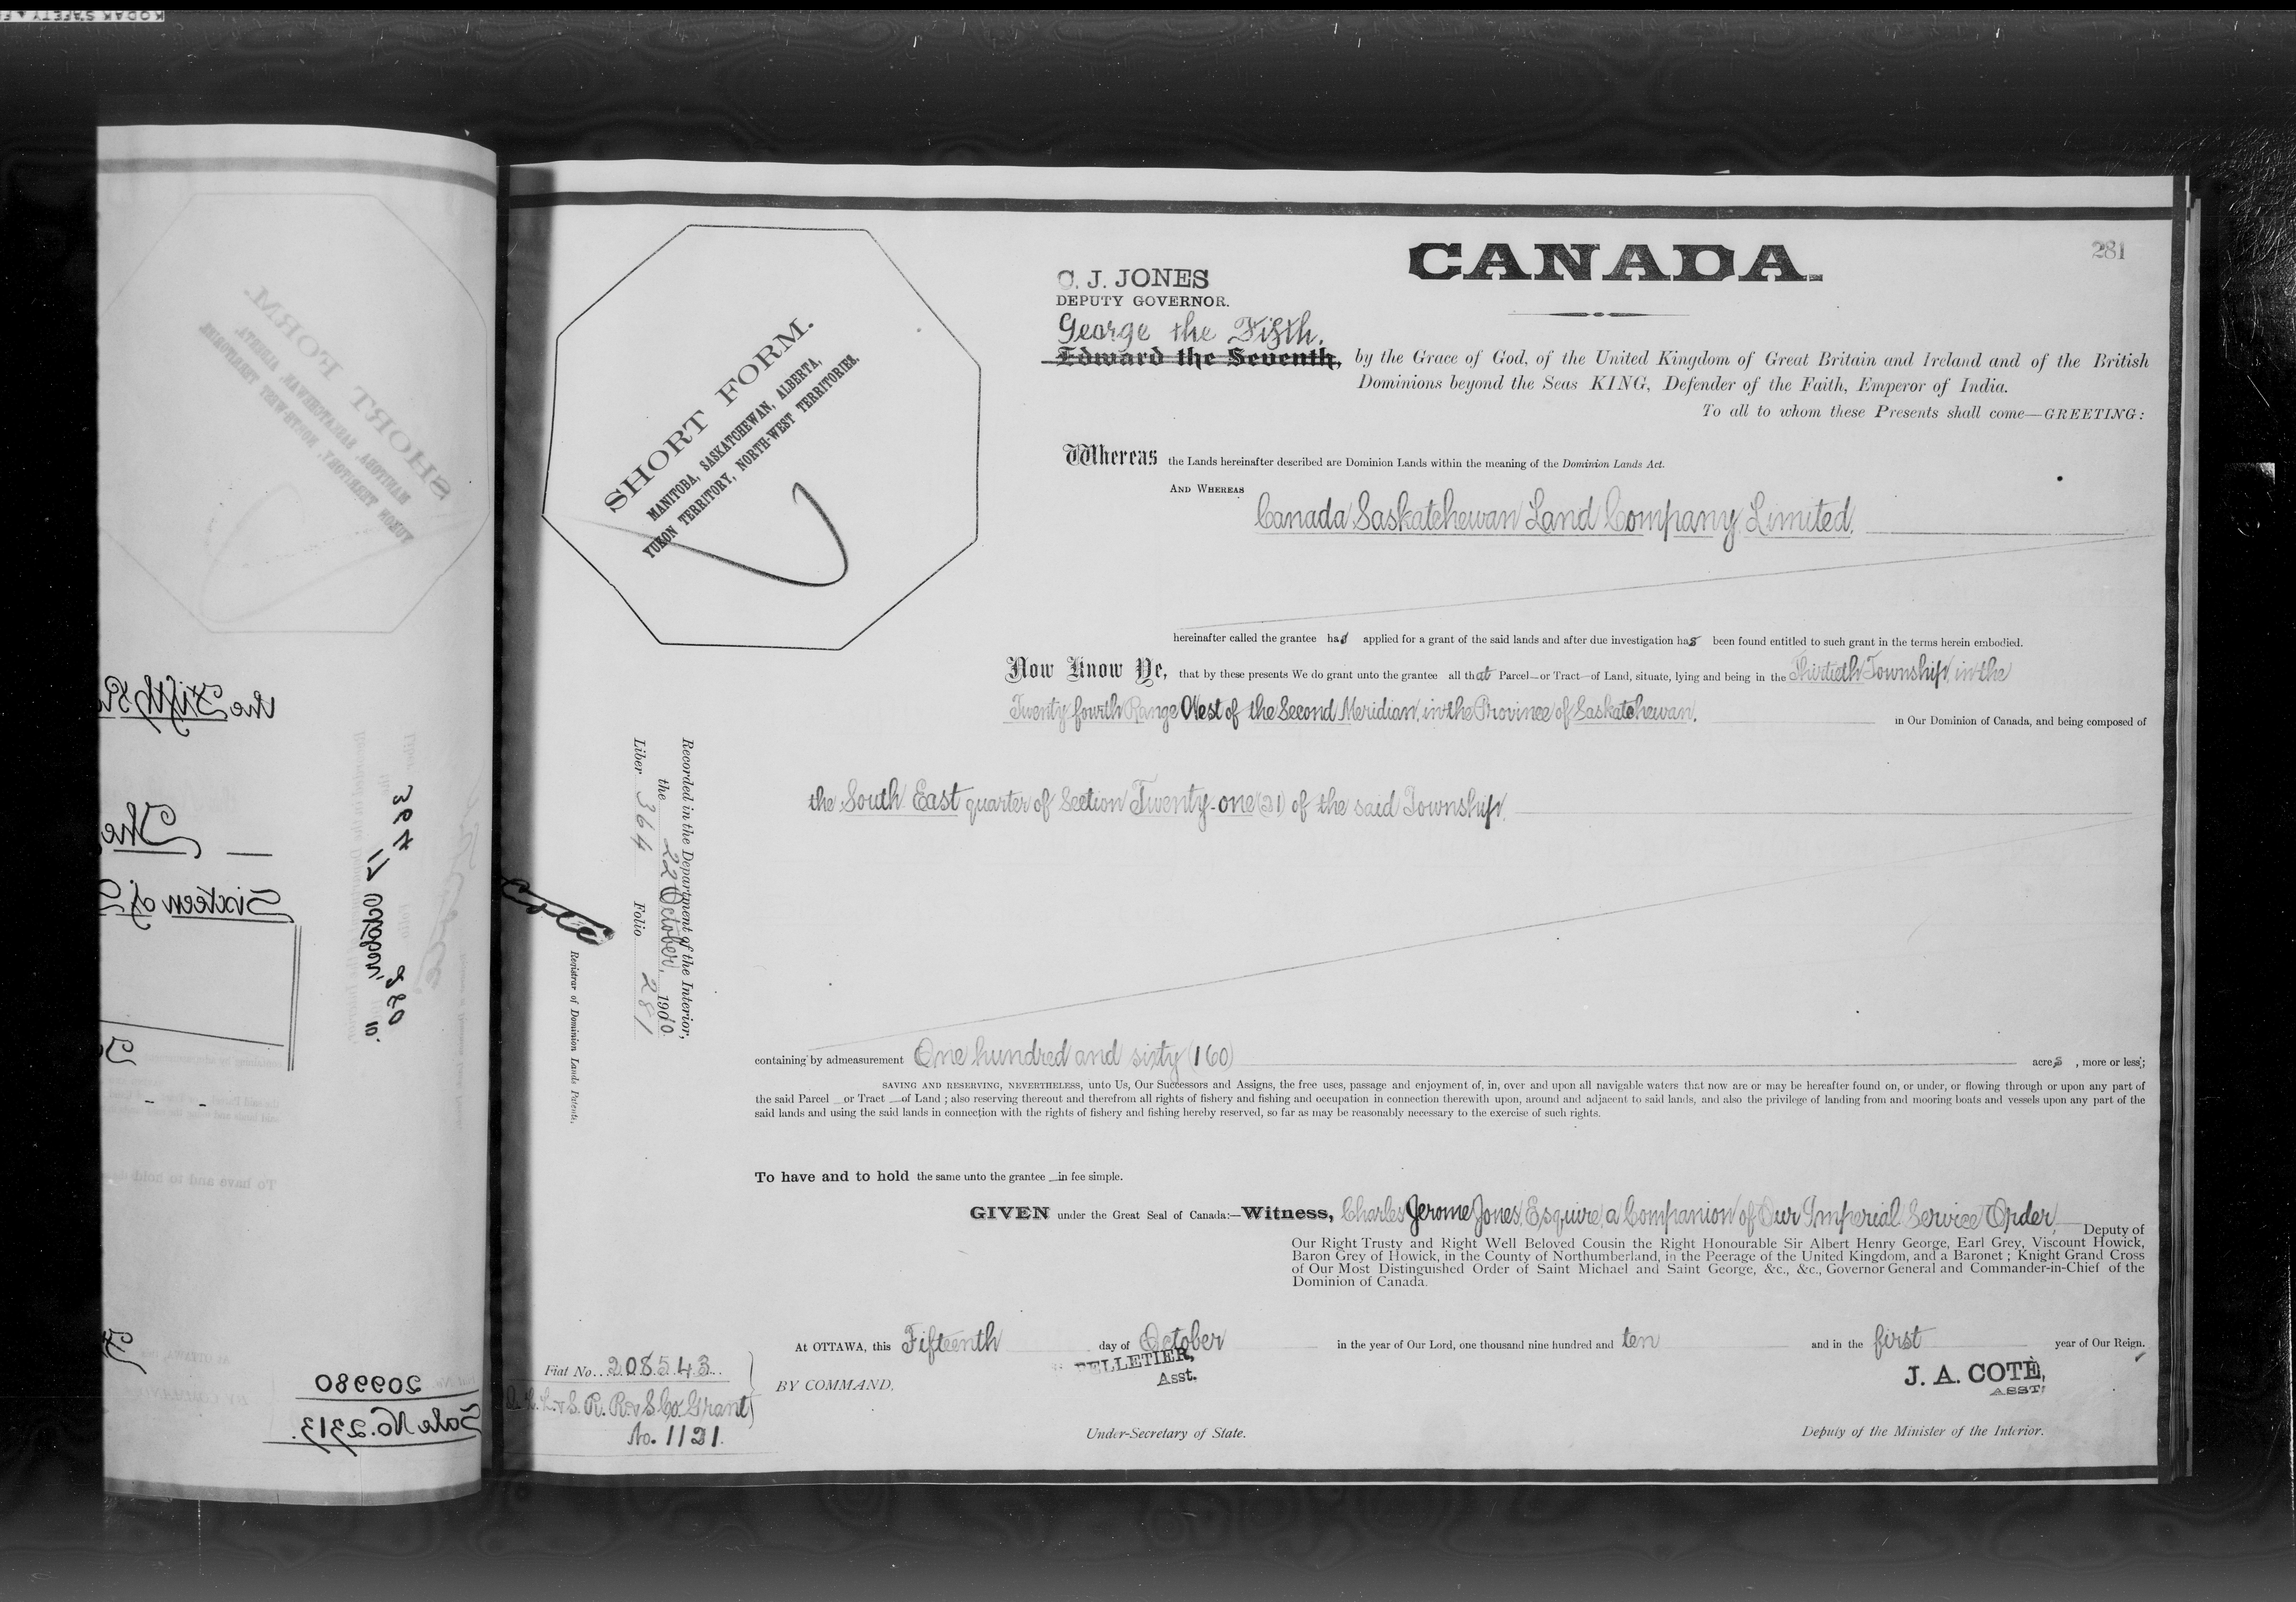 KODAK SAFETY
281
CANADA.
C. J. JONES
DEPUTY GOVERNOR.
George the Fifth.
Edward the Seventh, by the Grace of God, of the United Kingdom of Great Britain and Ireland and of the British
Dominions beyond the Seas KING, Defender of the Faith, Emperor of India.
To all to whom these Presents shall come—GREETING:
SHORT FORM.
MANITOBA, SASKATCHEWAN, ALBERTA,
YUKON TERRITORY, NORTH-WEST TERRITORIES.
Whereas the Lands hereinafter described are Dominion Lands within the meaning of the Dominion Lands Act.
AND WHEREAS
Canada Saskatchewan Land Company Limited.
hereinafter called the grantee has applied for a grant of the said lands and after due investigation has been found entitled to such grant in the terms herein embodied.
Now Know Ye, that by these presents We do grant unto the grantee all that Parcel—or Tract—of Land, situate, lying and being in the Thirtieth Township, in the
Twenty fourth Range West of the Second Meridian, in the Province of Saskatchewan, in Our Dominion of Canada, and being composed of
the South East quarter of Section Twenty-one (21) of the said Township.
Recorded in the Department of the Interior,
the 22 October, 1910
Liber 364 Folio 281
Coté
Registrar of Dominion Lands Patents.
containing by admeasurement One hundred and sixty (160) acres, more or less;
SAVING AND RESERVING, NEVERTHELESS, unto Us, Our Successors and Assigns, the free uses, passage and enjoyment of, in, over and upon all navigable waters that now are or may be hereafter found on, or under, or flowing through or upon any part of
the said Parcel—or Tract—of Land; also reserving thereout and therefrom all rights of fishery and fishing and occupation in connection therewith upon, around and adjacent to said lands, and also the privilege of landing from and mooring boats and vessels upon any part of the
said lands and using the said lands in connection with the rights of fishery and fishing hereby reserved, so far as may be reasonably necessary to the exercise of such rights.
To have and to hold the same unto the grantee—in fee simple.
GIVEN under the Great Seal of Canada:—Witness, Charles Jerome Jones, Esquire, a Companion of Our Imperial Service Order, Deputy of
Our Right Trusty and Right Well Beloved Cousin the Right Honourable Sir Albert Henry George, Earl Grey, Viscount Howick,
Baron Grey of Howick, in the County of Northumberland, in the Peerage of the United Kingdom, and a Baronet; Knight Grand Cross
of Our Most Distinguished Order of Saint Michael and Saint George, &c., &c., Governor General and Commander-in-Chief of the
Dominion of Canada.
At OTTAWA, this Fifteenth day of October in the year of Our Lord, one thousand nine hundred and ten and in the first year of Our Reign.
BY COMMAND,
PELLETIER,
Asst.
Under-Secretary of State.
J. A. COTÈ,
ASST.
Deputy of the Minister of the Interior.
Fiat No. 208543
Q. L. L. & S. R. R. & S. Co. Grant
No. 1121.
the Fifth
The
Sixteen of
394
17 October 10.
280
209980
Sale No. 2313.